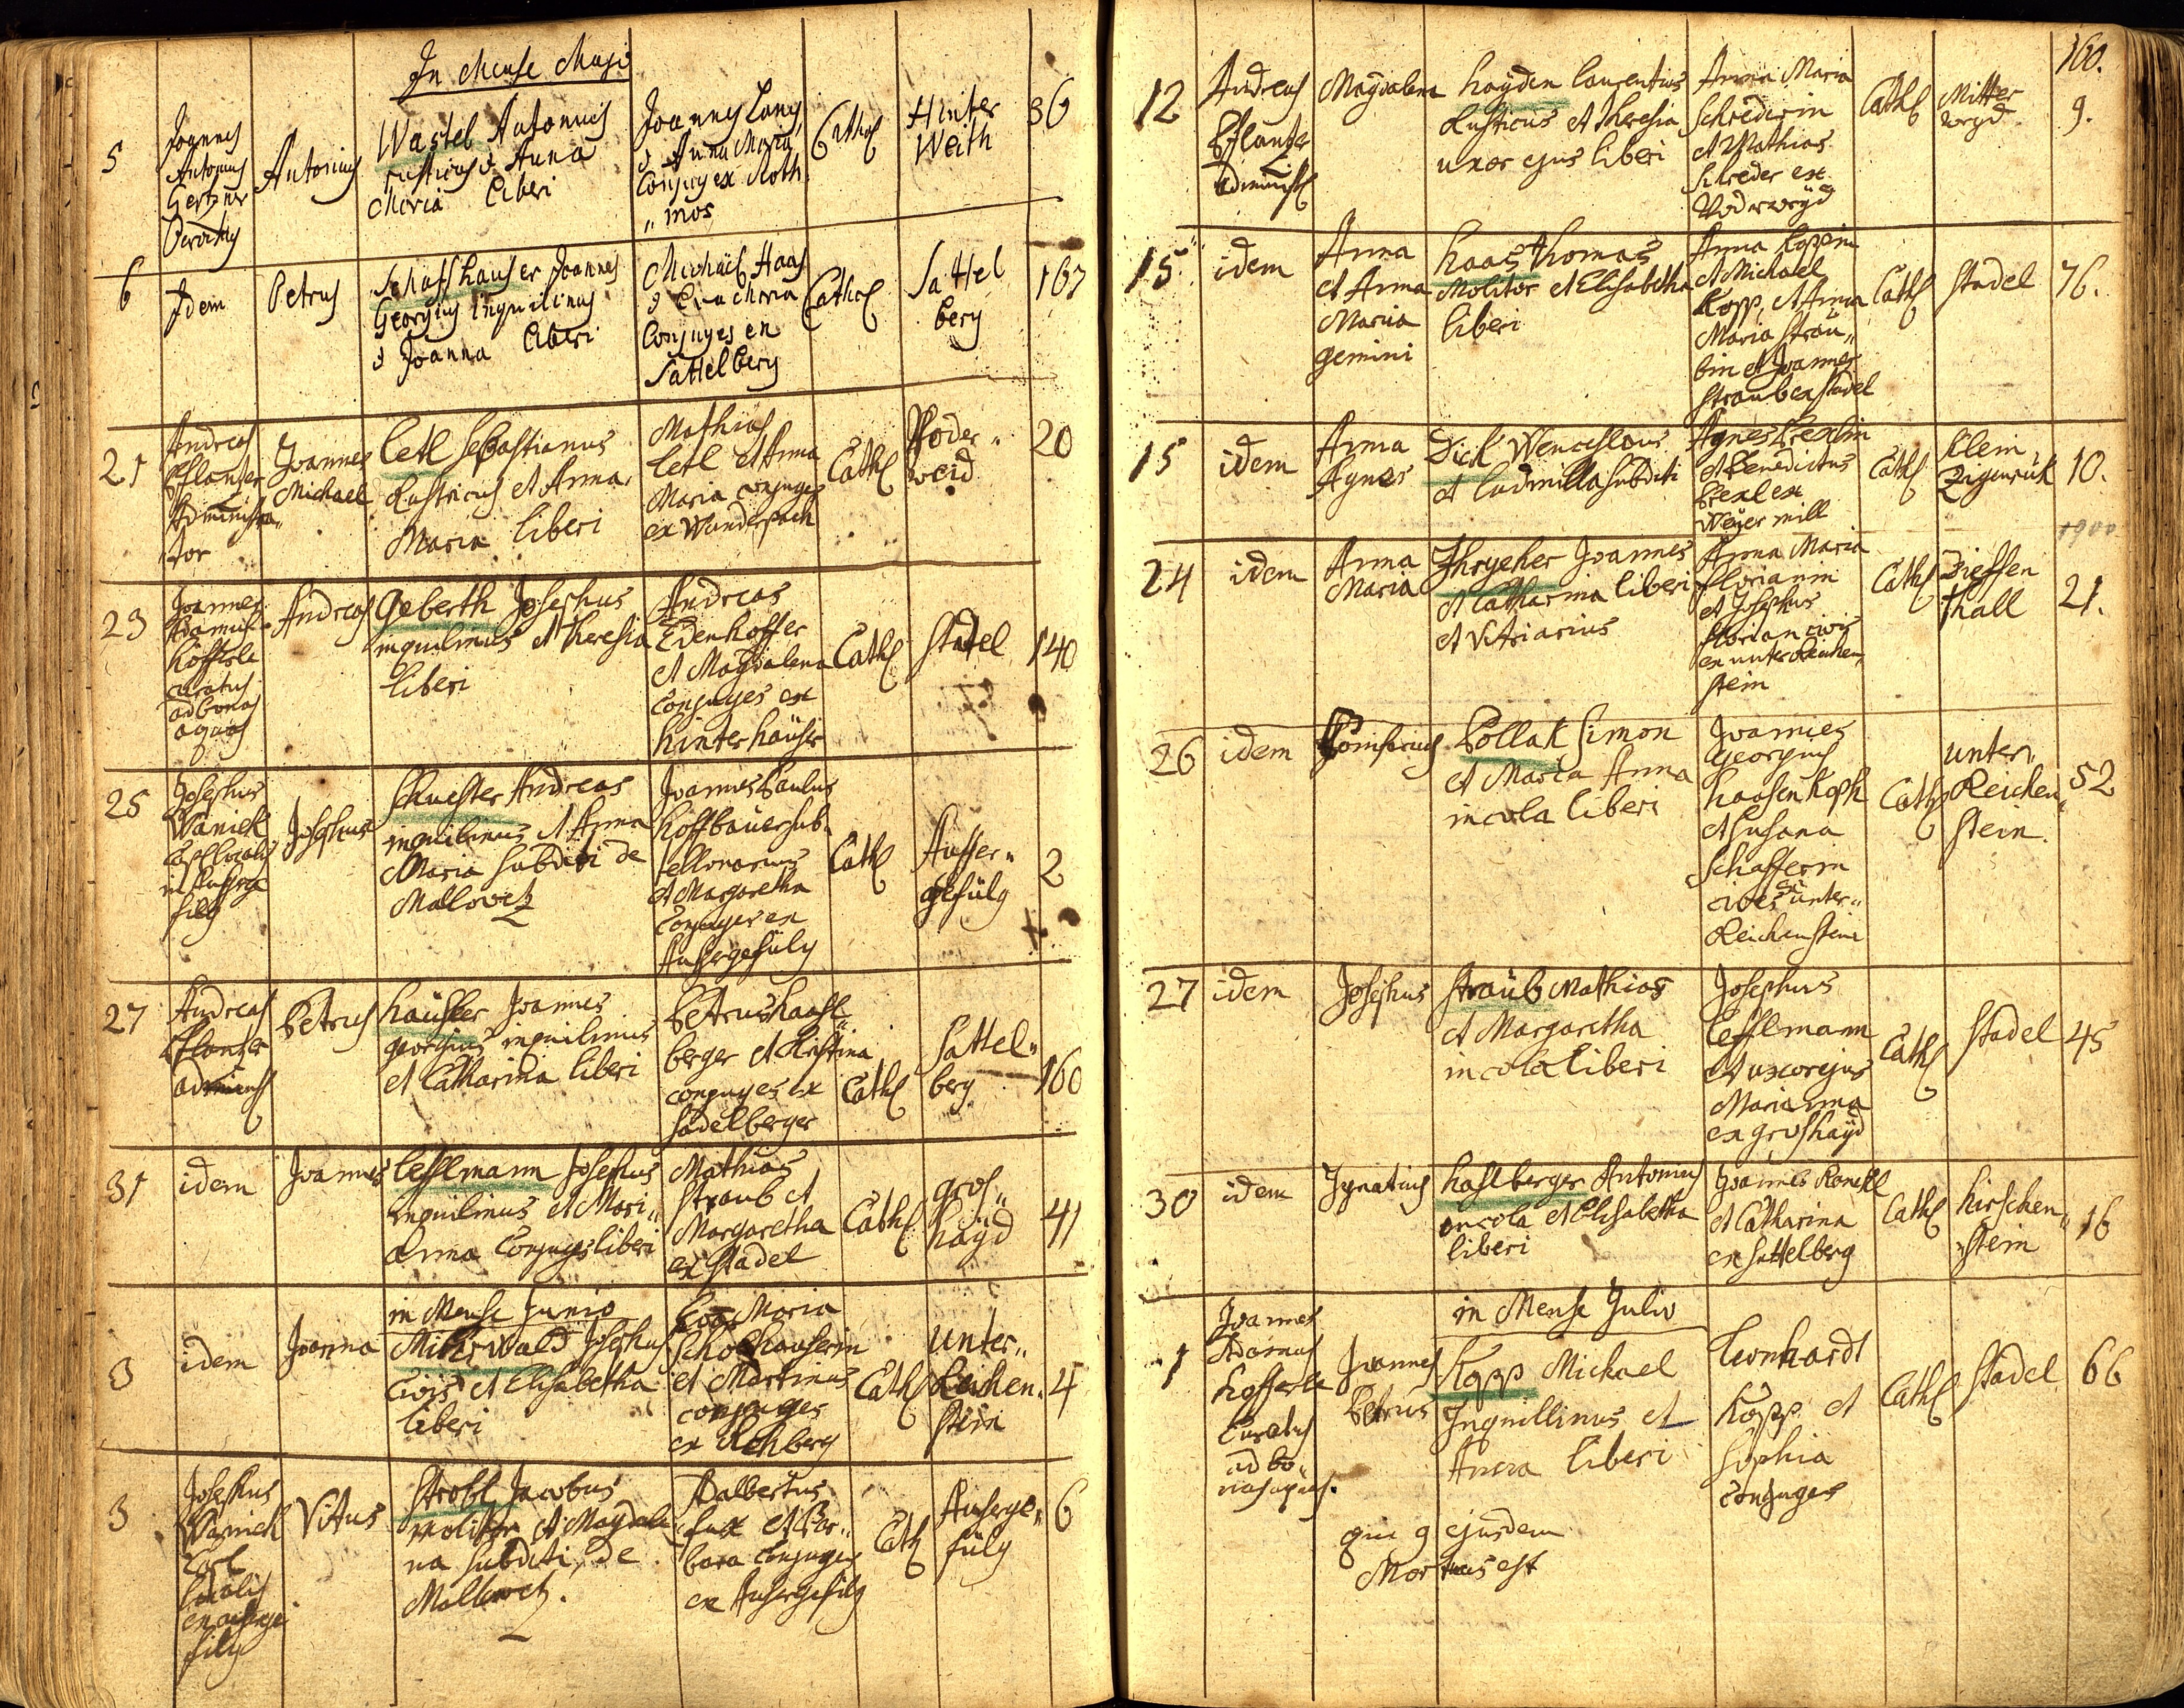 In Mense Maji
5
Joannes
Antonius
Gerzner
Antonius
Wastel Antonius
rusticus & Anna
Maria Liberi
Joannes Lang
& Anna Maria
Conjuges ex Roth
"mos
Cathol
Hinter
Weith
36
6
Idem
Petrus
Schaffhauser Joannes
Georgius Inquilinus
& Joanna Liberi
Michael Haas
& Eva Maria
Conjuges en
Sattelberg
Cathol
Sattel
berg
167
21
Andreas
Pflanzer
Administra"
tor
Joannes
Michael
Letl Sebastianus
Rusticus et Anna
Maria liberi
Mathias
Letl et Anna
Maria conjuges
ex Wunderbach
Cathl
Voder"
weid
20
23
Joannes
Höfferle
curatus
ad bonas
aquas
Andreas
Geberth Josephus
inquilinus et Theresia
liberi
Andreas
Edenhoffer
et Magdalena
Conjuges ex
Hinterhäuser
Cathl
Stadel
140
25
Josephus
Waniek
Josephus
Schuester Andreas
inquilinus et Anna
Maria Subditi de
Mallowetz
Joannes Paulus
Hoffbauer sub
tellonarius
et Margaretha
Conjuges ex
Aussergefülg
Cathl
Ausser"
gefülg
2
27
Andreas
Pflanzer
Petrus
Häusler Joannes
georgius inquilinus
et Catharina liberi
Petrus Haasl"
berger et Kristina
conjuges ex
Sadelberger
Cathl
Sattel"
berg
160
31
idem
Joannes
Lesslmann Josephus
inquilinus et Mari"
Anna Conjuges liberi
Mathias
Straub et
Margaretha
ex Stadel
Cathl
gros"
häyd
41
in Mense Junio
3
idem
Joanna
Josephus
Civis et Elisabetha
liberi
Eva Maria
et Martinus
conjuges
ex Rehberg
Cathl
Unter"
Reichen"
stein
4
3
Josephus
Waniek
Vitus
Strobl Jacobus
Molitor et Magdale
na Subditi, de
Mallowetz.
Adalbertus
Fux et Bar"
bara Conjuges
ex Aussergefülg
Cath
Ausserge"
fülg
6
160.
12
Andreas
Pflanzer
Magdalena
Hayden Laurentius
Rusticus et Theresia
uxor ejus liberi
Anna Maria
Schrederin
et Mathias
Schreder ex
Voderweyd
Cathl
Mitter
weyd
9.
15
idem
Anna
et Anna
Maria
gemini
Haas Thomas
Molitor et Elisabetha
liberi
Anna Koppin
et Michael
Kopp, et Anna
Maria Strau"
bin et Joannes
Straub ex Stadel
Cathl
Stadel
76.
15
idem
Anna
Agnes
Dick Wenceslaus
et Ludmilla Subditi
et Benedictus
ex
Weyer mill
Cathl
Klein
Zigenruk
10.
1900
24
idem
Anna
Maria
Joannes
et Catharina liberi
et Vitriarius
Anna Maria
Florianin
et Josephus
Florian civis
ex unter Reichen"
stein
Cathl
Dieffen
thall
21.
26
idem
Pollak Simon
et Maria Anna
incola liberi
Joannes
Georgius
Haasenkoph
et Susana
Schafferin
cives ex unter"
Reichenstein
Cathl
unter
Reichen"
stein.
52
27
idem
Josephus
Straub Mathias
et Margaretha
incola liberi
Josephus
Lesslmann
et uxor ejus
Marianna
ex groshayd
Cathl
Stadel
45
30
idem
Ignatius
Haslberger Antonius
incola et Elisabetha
liberi
et Catharina
ex Sattelberg
Cathl
Hirschen"
stein
16
in Mense Julio
1
Joannes
Adamus
Hofferle
Curatus
ad bo"
nas aquas.
Joannes
Petrus
Kopp Michael
Inquillinus et
Anna liberi
Leonhardt
Kopp et
Sophia
Conjuges
Cathl
Stadel
66
qui 9 ejusdem
Mortuus est